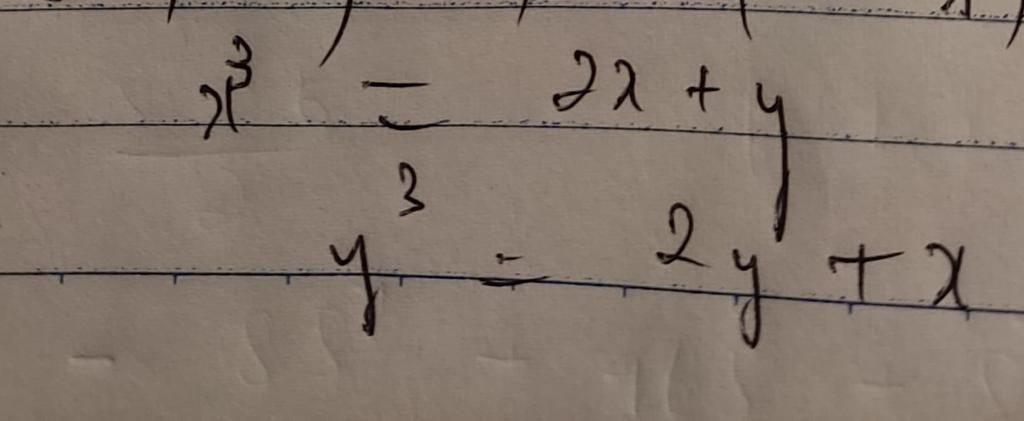 x³ = 2x + y
y³ = 2y + x